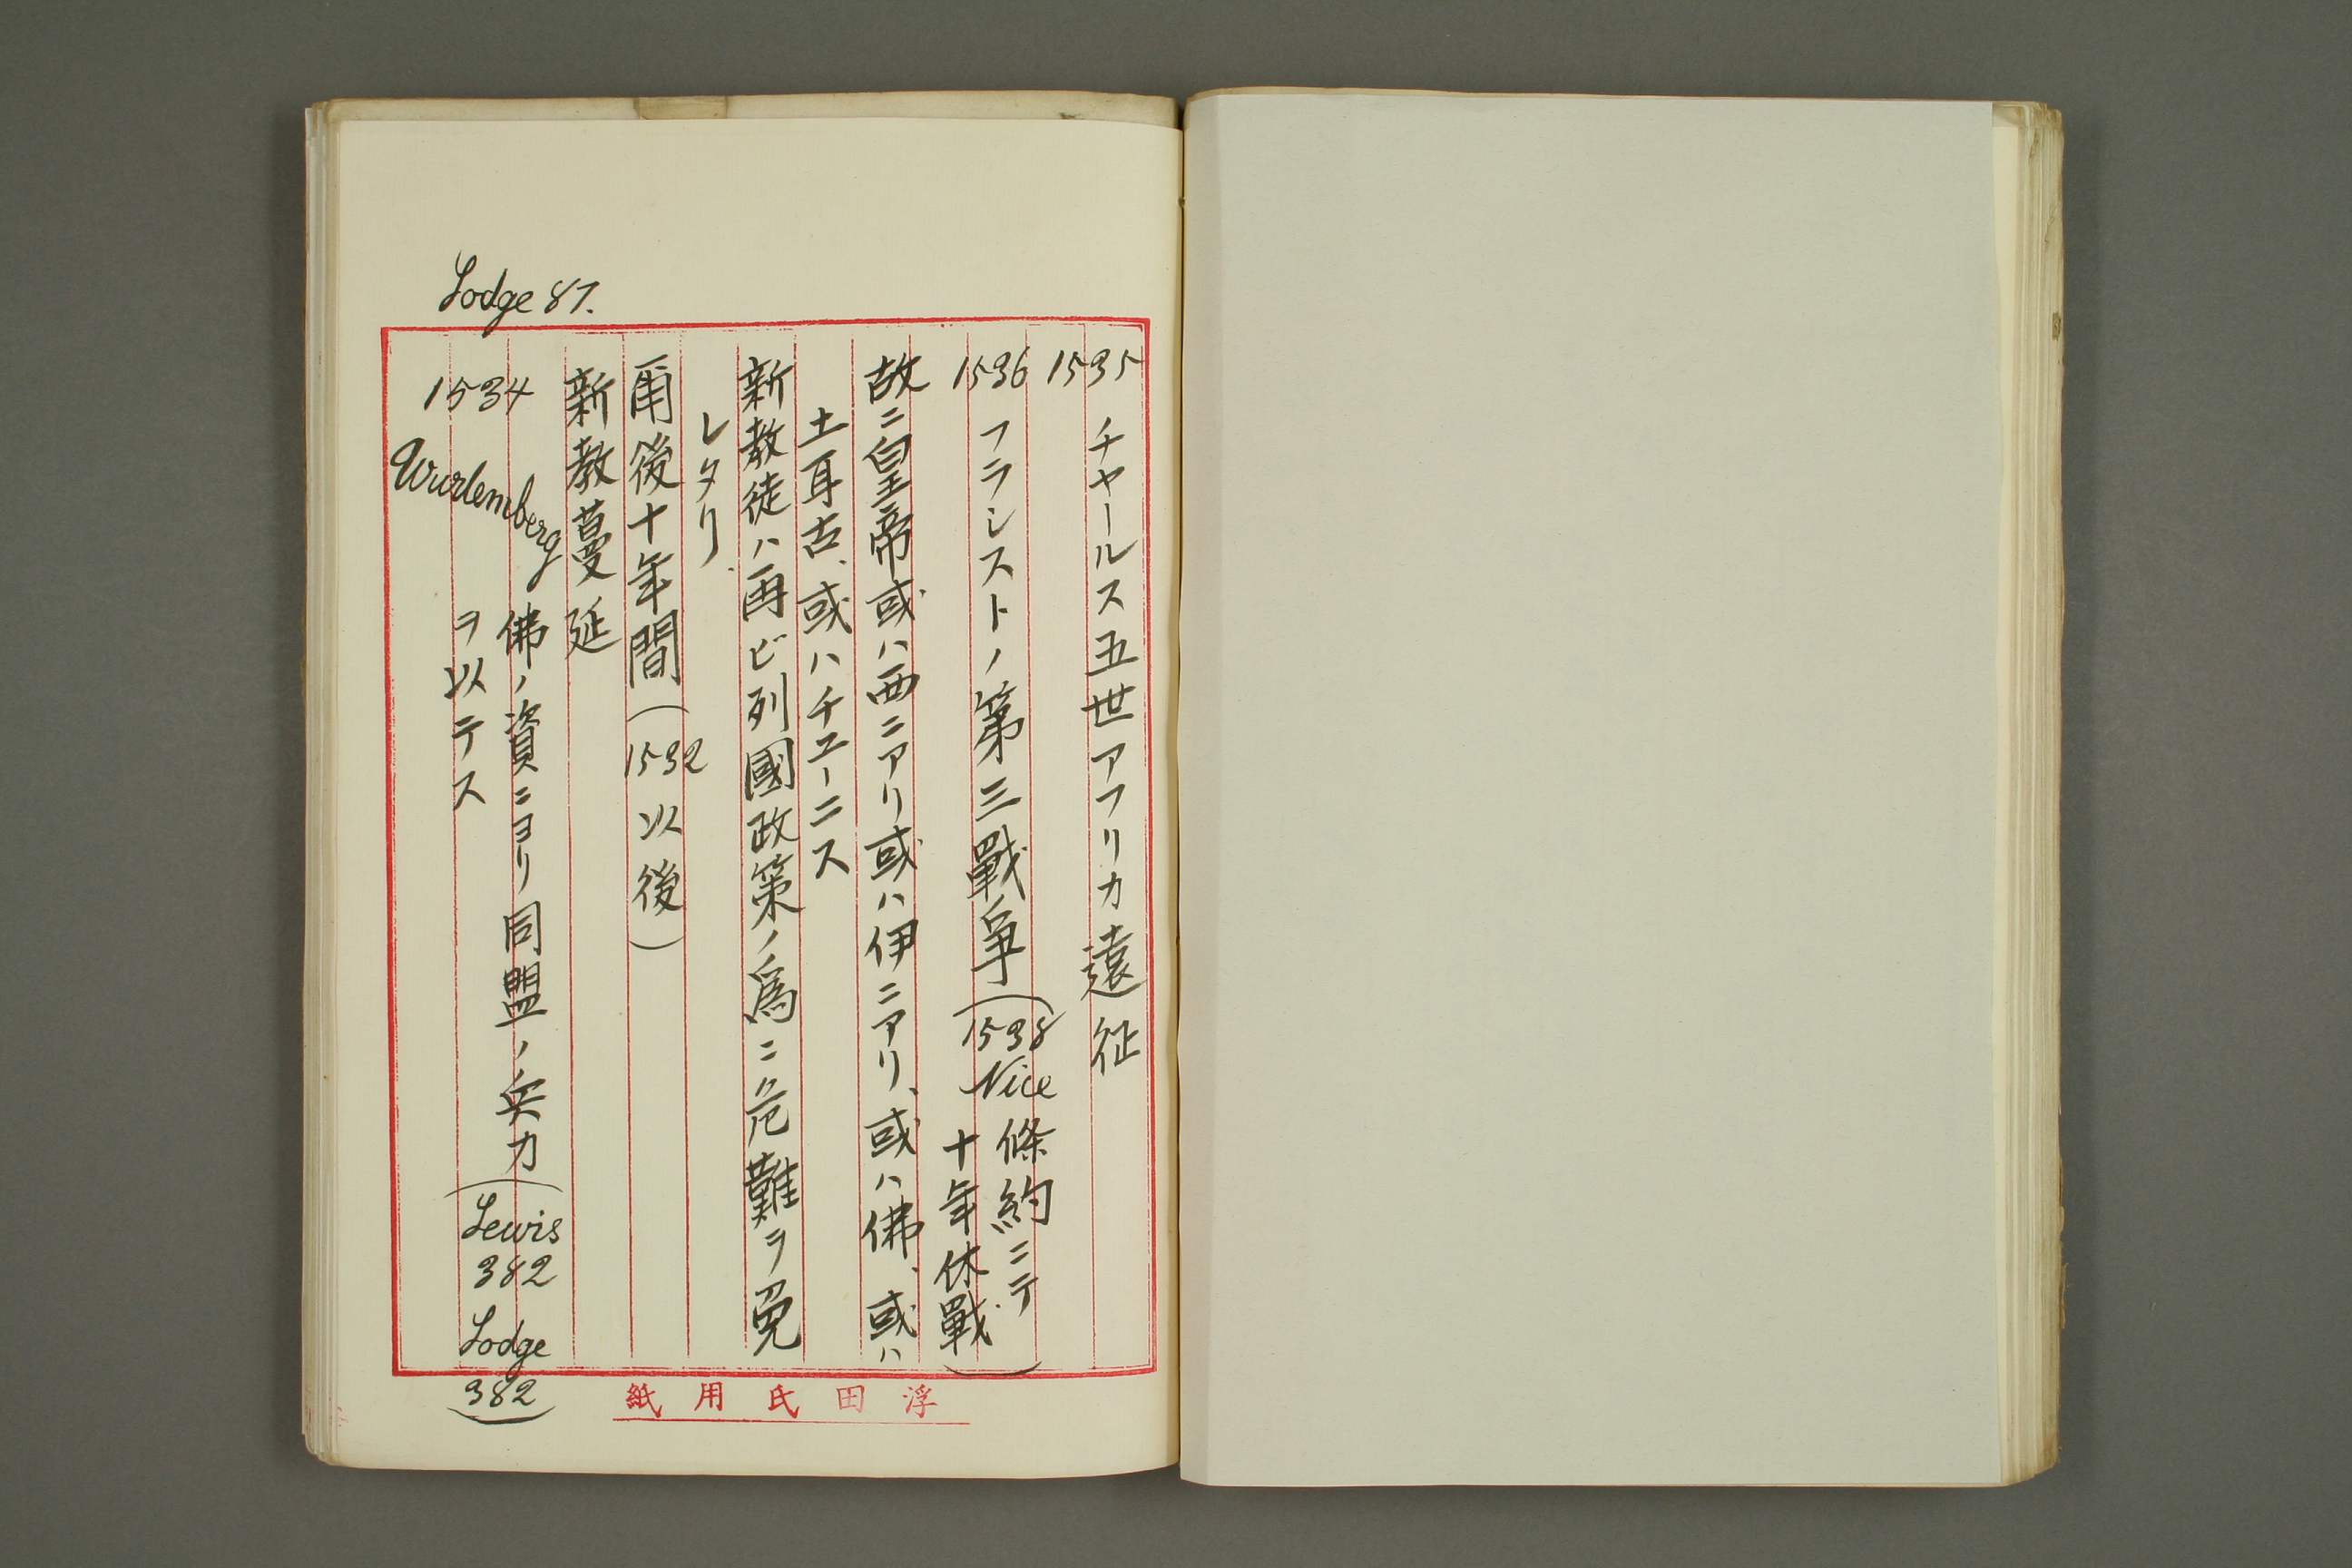 1535 チヤールス五世アフリカ遠征
1536 フラシストノ第三戰爭(1538 Nice 條約ニテ
十年休戰)
故ニ皇帝或ハ西ニアリ或ハ伊ニアリ、或ハ佛、或ハ
土耳古、或ハチユーニス
新教徒ハ再ビ列國政策ノ爲ニ危難ヲ免
レタリ.
甬後十年間(1532以後)
新教蔓延
Lodge 87.
1534 Wurlemberg 佛ノ資ニヨリ同盟ノ兵力
ヲ以テス
(Lewis
382
Lodge
382)
浮田氏用紙